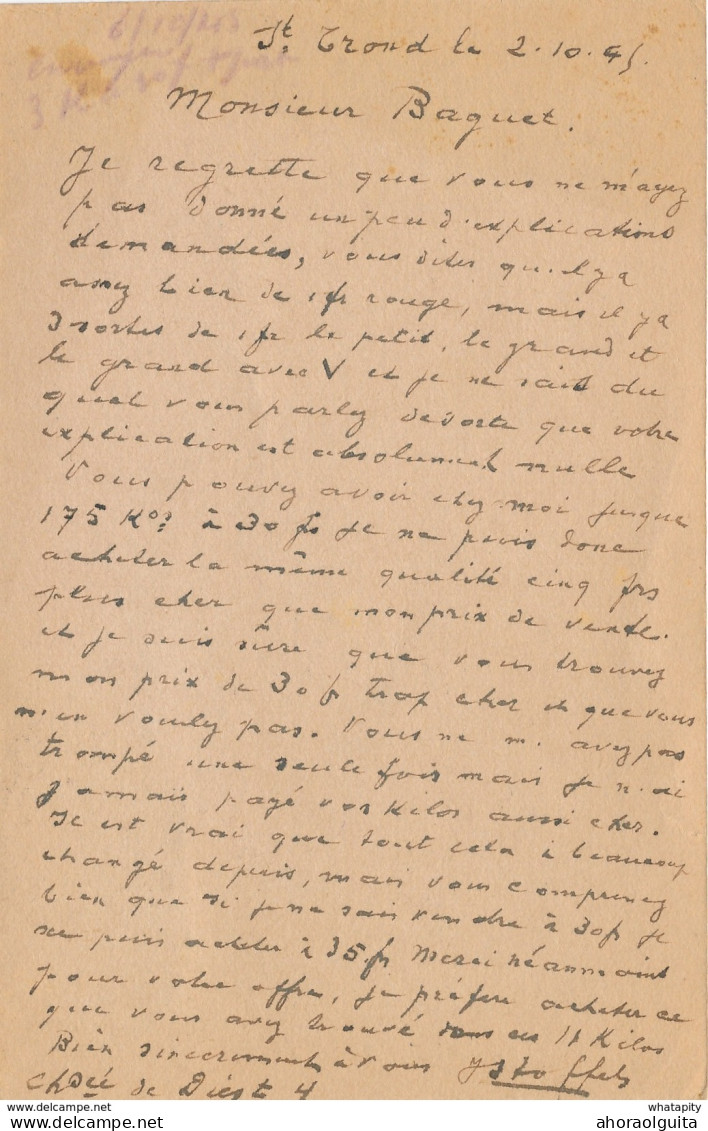 6/10/45
St Trond le 2.10.45.
Monsieur Baguet.
Je regrette que vous ne m'ayez
pas donné un peu d'explications
demandées, vous dites qu'il y a
assez bien de 1fr rouge, mais il y a
3 sortes de 1fr le petit, le grand et
le grand avec V et je ne sait du
quel vous parlez de sorte que votre
explication est absolument nulle
Vous pouvez avoir chez moi jusque
175 Kos à 30 frs je ne puis donc
acheter la même qualité cinq frs
plus cher que mon prix de vente.
et je suis sûre que vous trouvez
mon prix de 30 fr trop cher et que vous
n'en voulez pas. Vous ne m'avez pas
trompé une seule fois mais je n'ai
jamais payé vos Kilos aussi cher.
Il est vrai que tout cela à beaucoup
changé depuis, mais vous comprenez
bien que si je ne sais vendre à 30 fr je
ne puis acheter à 35 fr Merci néanmoins
pour votre offre, je préfère acheter ce
que vous avez trouvé dans ces 11 Kilos
Bien sincèrement à vous JStoffels
Chée de Diest 4
whatapity
www.delcampe.net
ahoraolguita